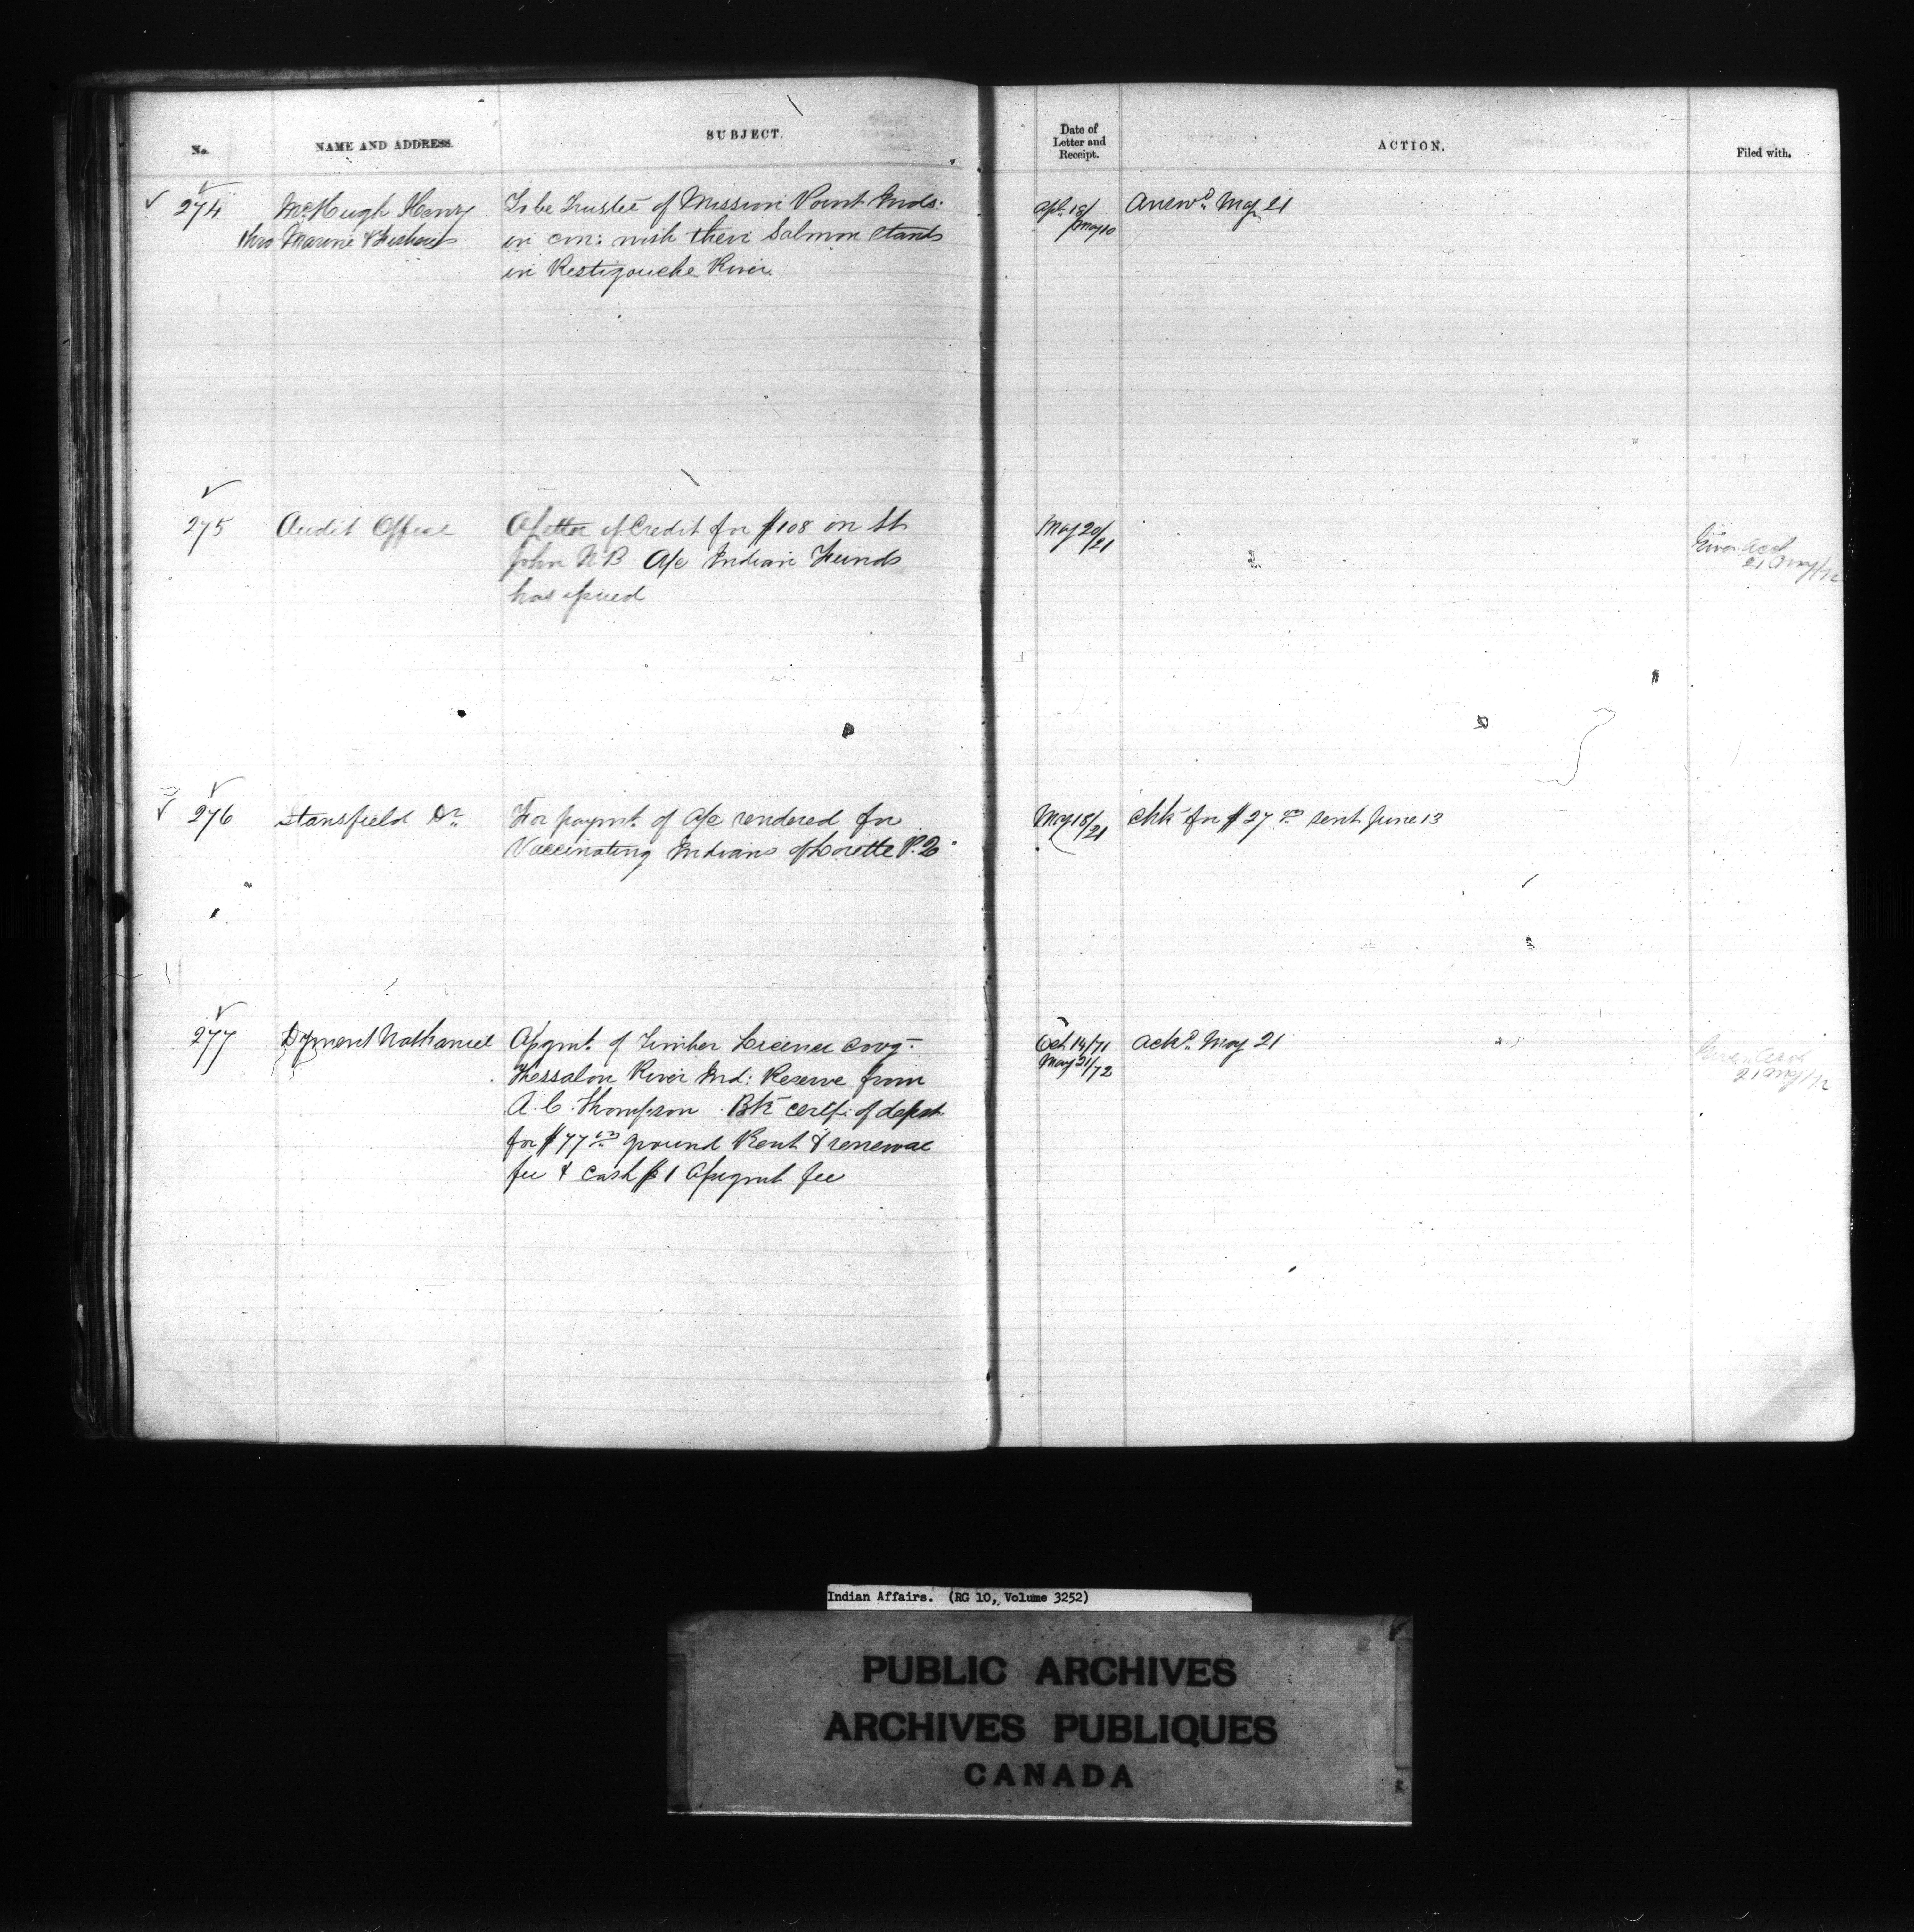 No.
NAME AND ADDRESS.
SUBJECT.
Date of
Letter and
Receipt.
ACTION.
Filed with.
274
McHugh Henry
thro Marine & Fisheries
To be Trustee of Mission Point Inds:
in con: with their Salmon Stands
in Restigouche River.
Apl. 18/
May 10
Answd. May 21
275
Audit Office
A Letter of Credit for $108 on St
John N B A/c Indian Funds
has issued
May 20/
21
Given Acct
21 May/72
276
Stansfield Dr.
For paymt. of A/c rendered for
Vaccinating Indians of Lorette P.Q.
May 18/
21
Chk for $27 00 sent June 13
277
Dyment Nathaniel
Assgmt. of Timber License covg.
Thessalon River Ind: Reserve from
A. C. Thompson. Bk certf: of depst
for $77 00 ground Rent & renewal
fee & cash $1 Assignmt fee
Oct 14/71
May 21/72
Ackd. May 21
Given Acct
21 May/72
Indian Affairs. (RG 10, Volume 3252)
PUBLIC ARCHIVES
ARCHIVES PUBLIQUES
CANADA